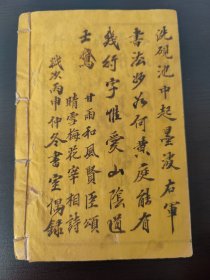 洗硯池中起墨波右軍
書法妙如何黃庭能有
幾行字惟愛山陰道
士鵞
甘雨和風賢臣頌
晴雪梅花宰相詩
歲次丙申仲冬書室偶錄